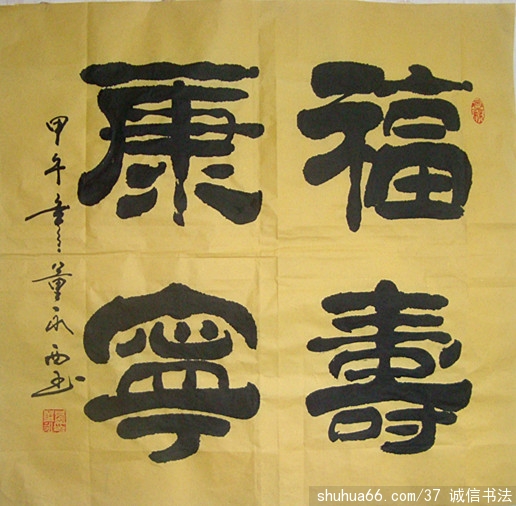 福壽
康寧
甲午年董永西书
shuhua66.com/37 诚信书法